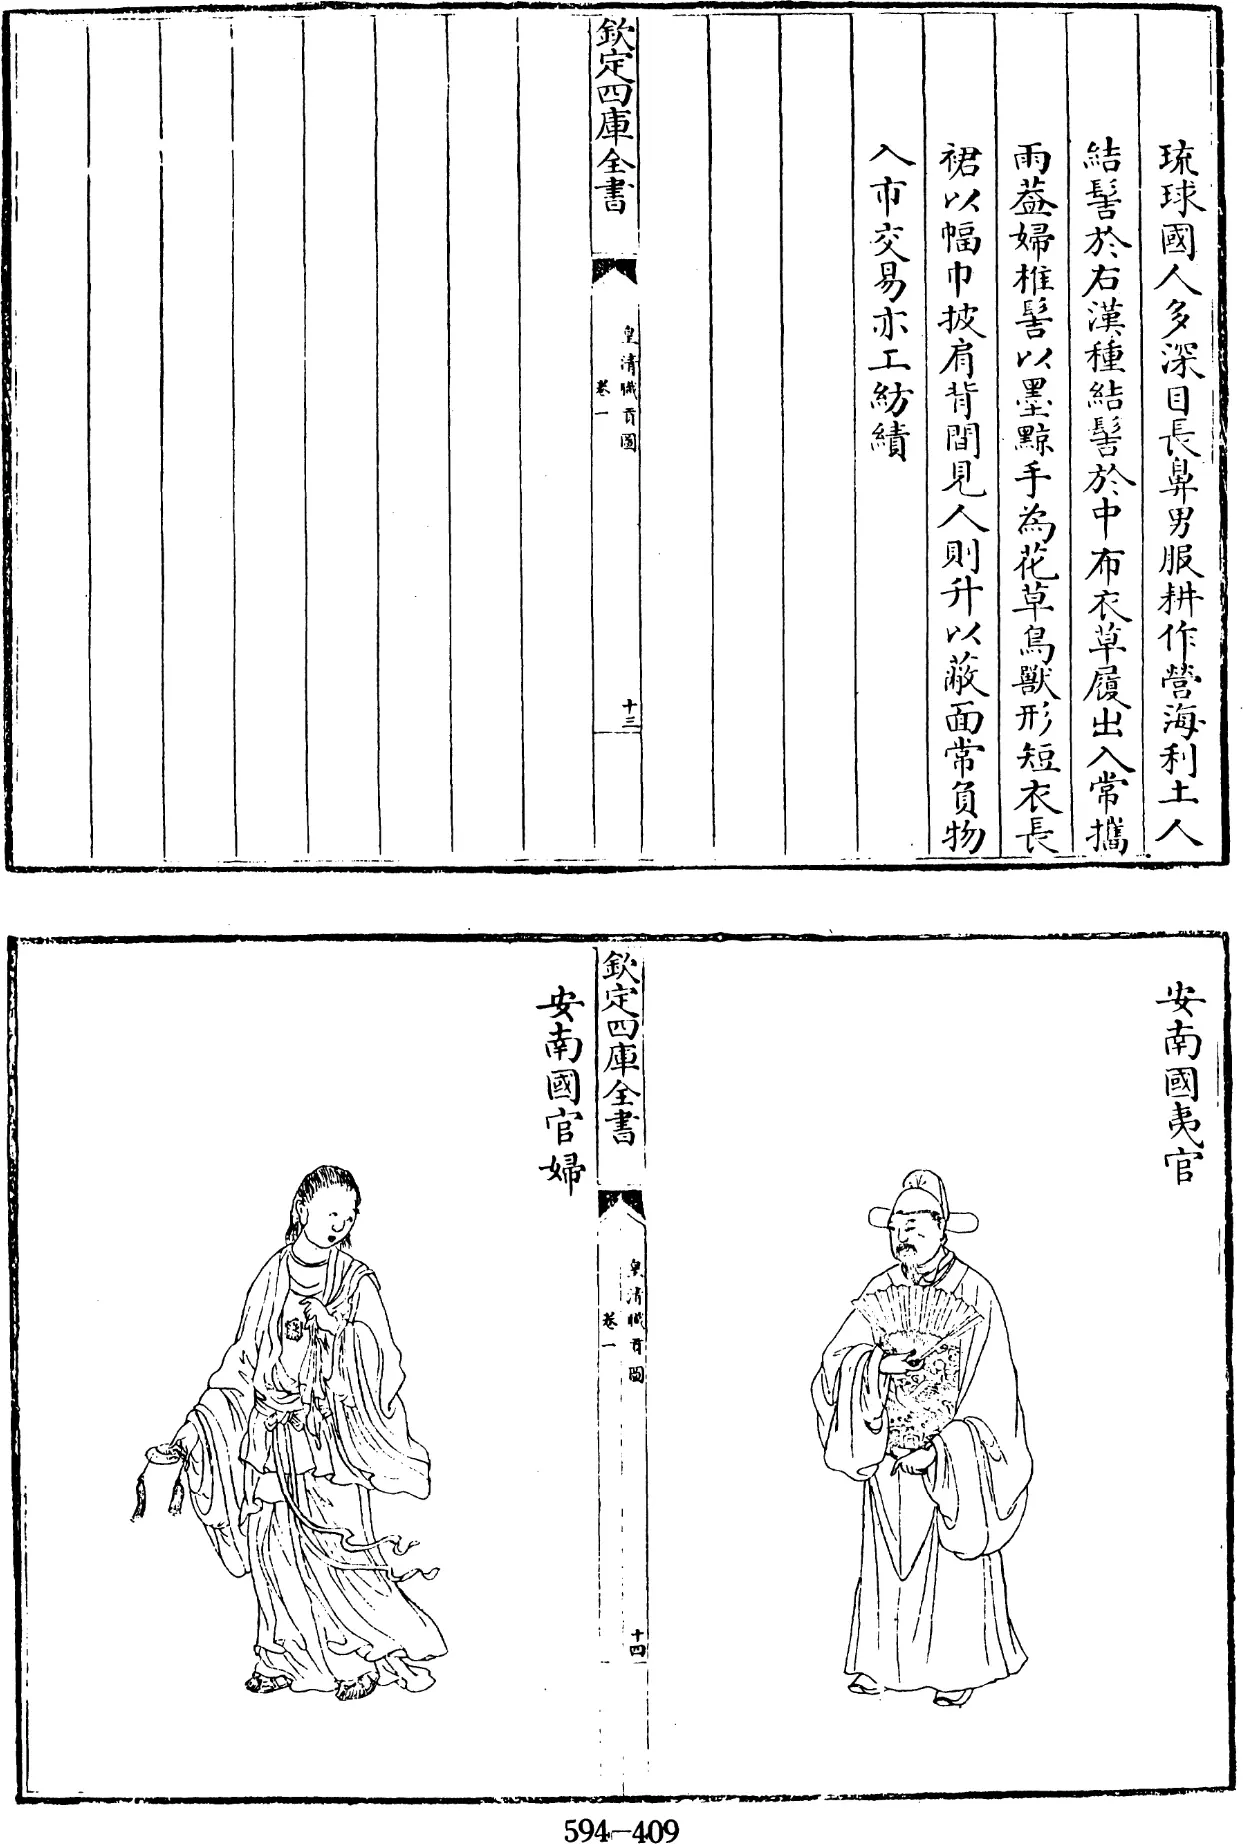 琉球國人多深目長鼻男服耕作營海利土人
結髻於右漢種結髻於中布衣草履出入常攜
雨葢婦椎髻以墨黥手為花草鳥獸形短衣長
裙以幅巾披肩背間見人則升以蔽面常負物
入市交易亦工紡績
欽定四庫全書
皇清職貢圖
卷一
十三
安南國夷官
欽定四庫全書
皇清職貢圖
卷一
十四
安南國官婦
594-409